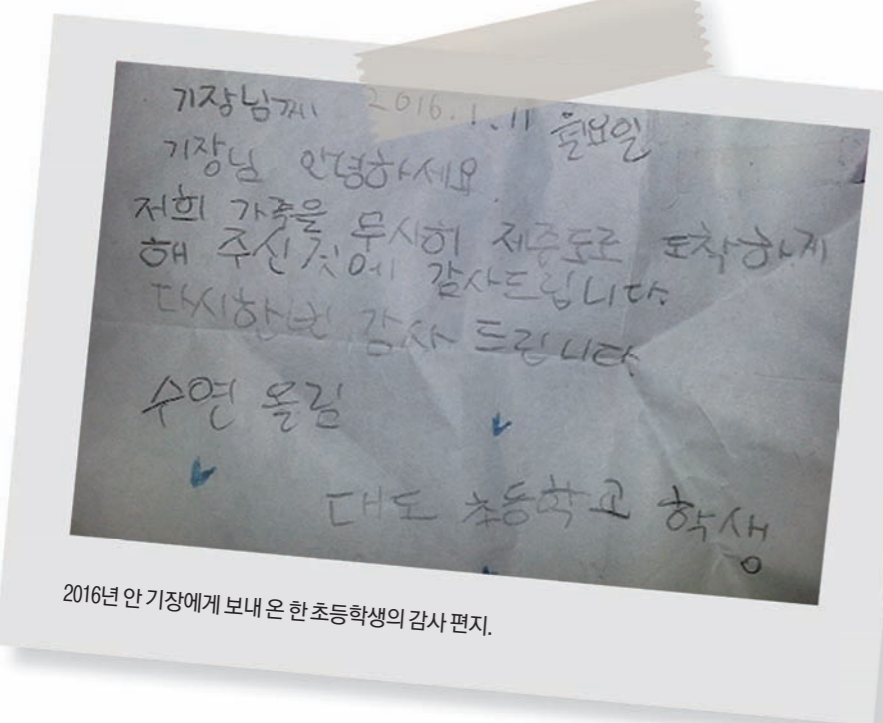 기장님께 2016.1.11 월요일
기장님 안녕하세요
저희 가족을 무사히 제주도로 도착하게
해 주신것에 감사드립니다.
다시한번 감사 드립니다.
수연 올림
대도 초등학교 학생
2016년 안 기장에게 보내 온 한 초등학생의 감사 편지.